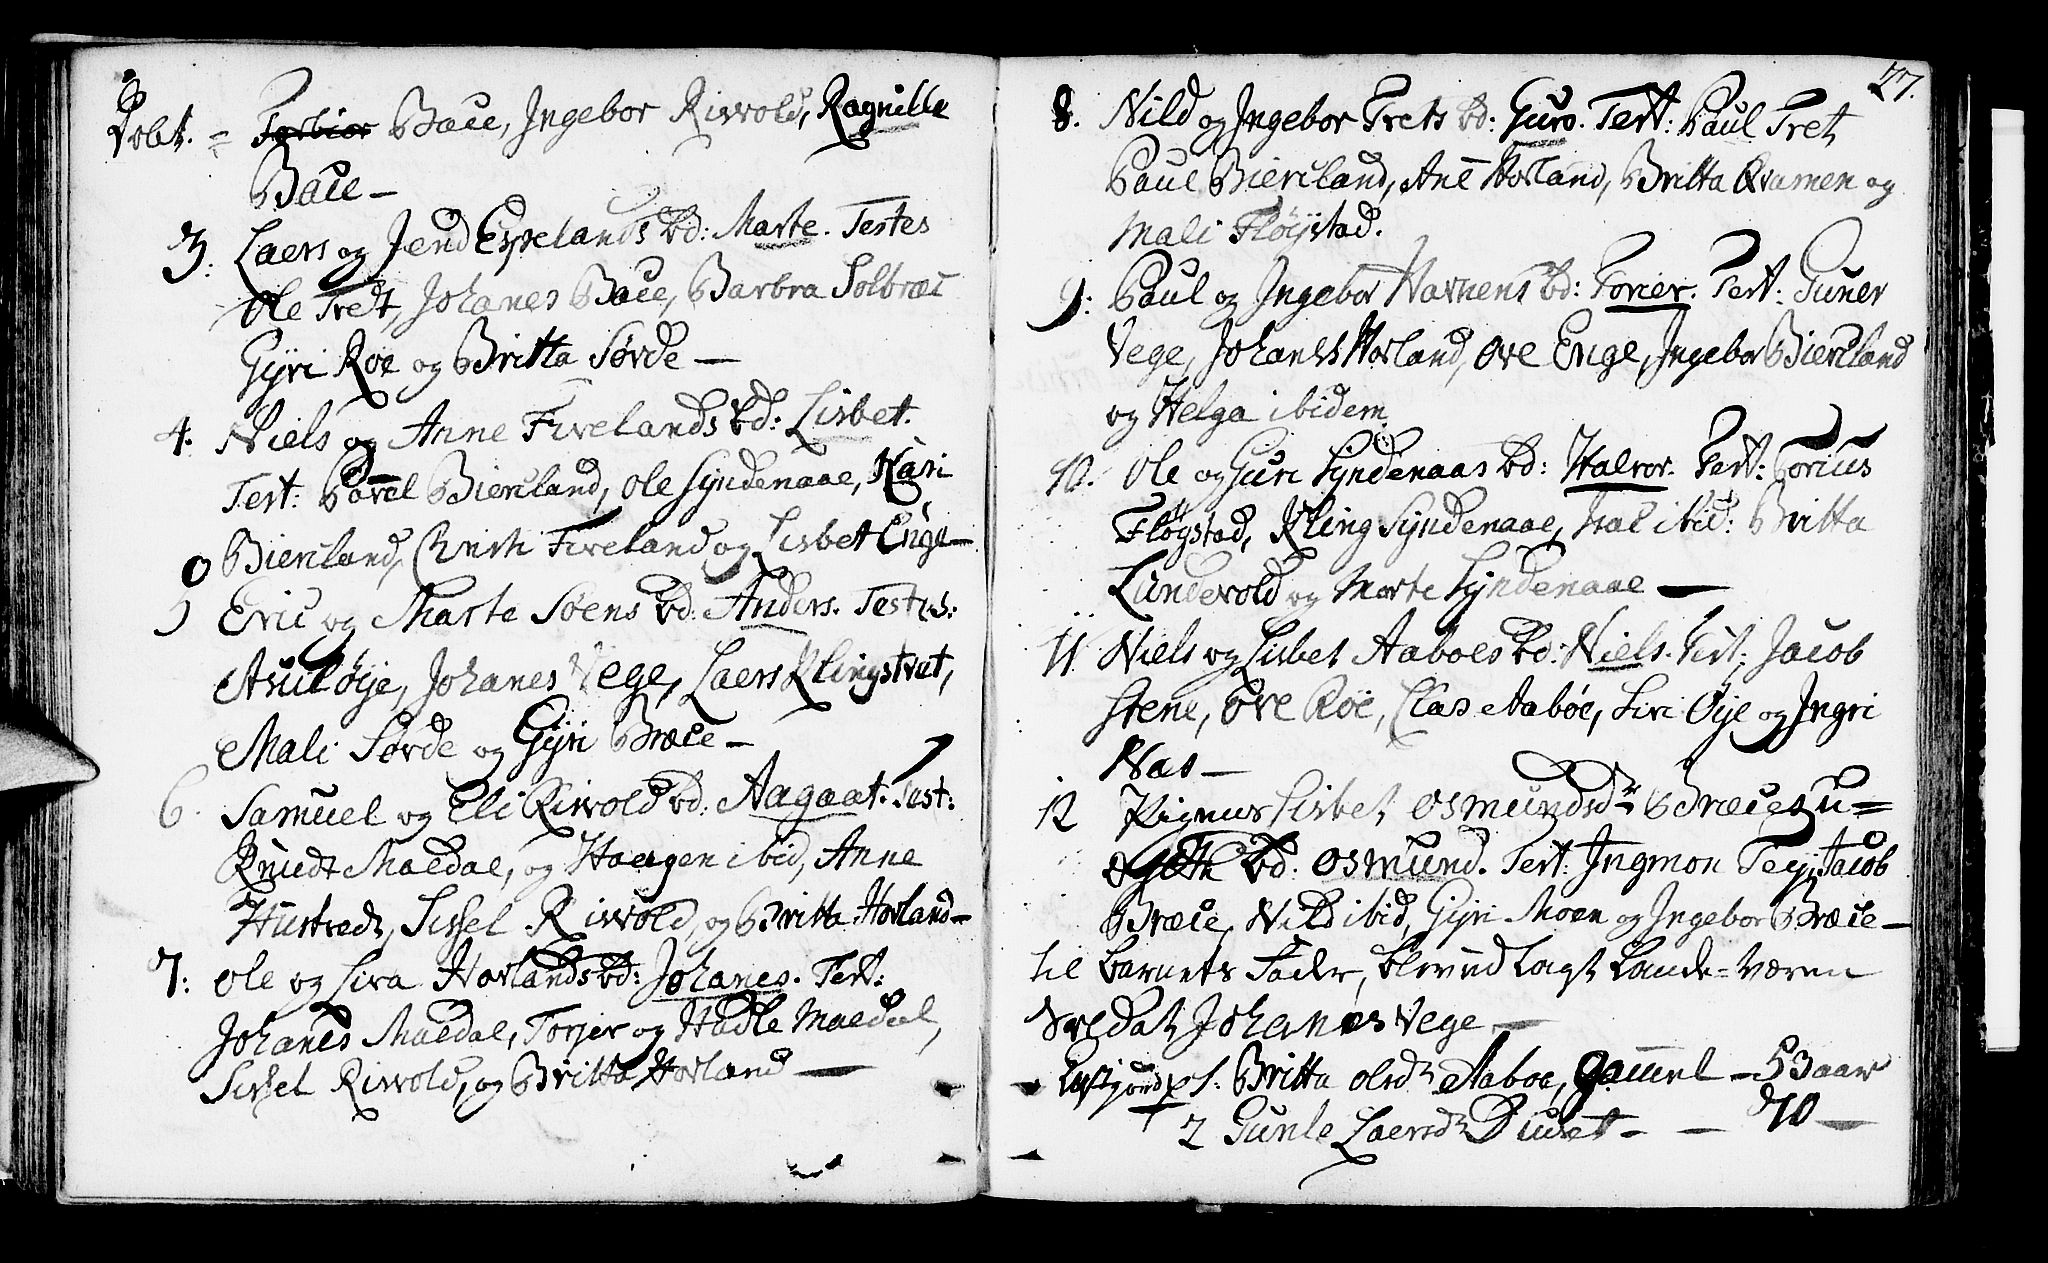 Dobt. = Torbior Bace, Ingebor Risvold, Ragnille
Bace -
3. Laers og Jend Espelands bd: Marte. Testes
Ole Tredt, Johanes Bace, Barbra Solbrac
Gÿri Roe og Britta Sørde -
4. Niels og Anne Fivelands bd: Lisbet.
Test: Bierland, Ole Syndenaae, Kari
Bierland, Fiveland og Lisbet Enge -
5 Eric og Marte Søens bd: Anders. Testes:
Asul Øye, Johanes Vege, Laers Klingstret,
Mali Sørde og Gÿri Bræce -
6. Samuel og Eli Risvold bd: Aagaat. Test:
Knudt Maedal, og Haagen ibid, Anne
Hustredt, Sissel Risvold, og Britta Horland -
7. Ole og Sira Horlands bd: Johanes. Test:
Johanes Maedal, Torjer og Hadle Maedal,
Sissel Risvold, og Britta Horland -
27.
8. Nild og Ingebor Trets bd: Guro. Test: Paul Tret
Paul Bierland, Ane Horland, Britta Qvamen og
Mali Fløystad.
9. Paul og Ingebor Havnens bd: Torier. Test: Guner
Vege, Johanes Horland, Ove Enge, Ingebor Bierland
og Helga ibidem.
10. Ole og Guri Syndenaas bd: Halvor. Test: Torius
Fløgstad, Kling Syndenaae, ibid: Britta
Lundevold og Marte Syndenaae -
11. Niels og Lisbet Aaboes bd: Niels. Test: Jacob
Stene, Ove Roe, Claes Aabøe, Siri Øye og Ingri
Nas -
12 Pigens Lisbet Osmundsdr Bræces u=
ægte bd: Osmund. Test: Ingmon Teÿ, Jacob
Bræce, Nild ibid, Gÿri Moen og Ingebor Bræce -
til Barnets Fader, blev udlagt Lande=Værn
Soldat Johanes Vege -
1. Britta Olsdr Aaboe, Gammel - 53 aar
2 Gunle Laersdr - - 70 -